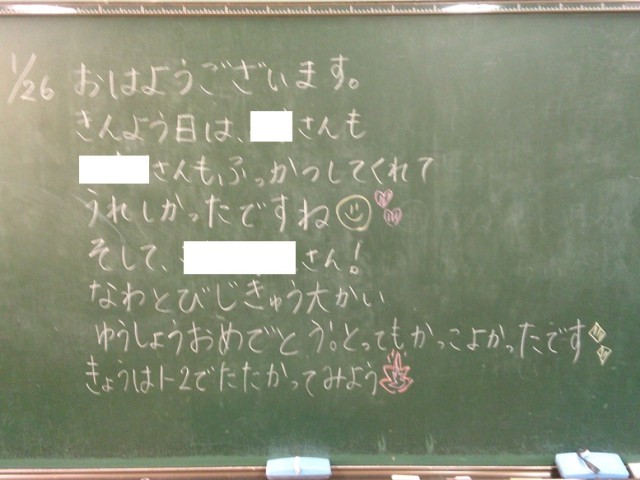 1/26 おはようございます。
きんよう日は、さんも
さんも、ふっかつしてくれて
うれしかったですね
そして、さん!
なわとびじきゅう大かい
ゆうしょうおめでとう。とってもかっこよかったです
きょうはト2でたたかってみよう